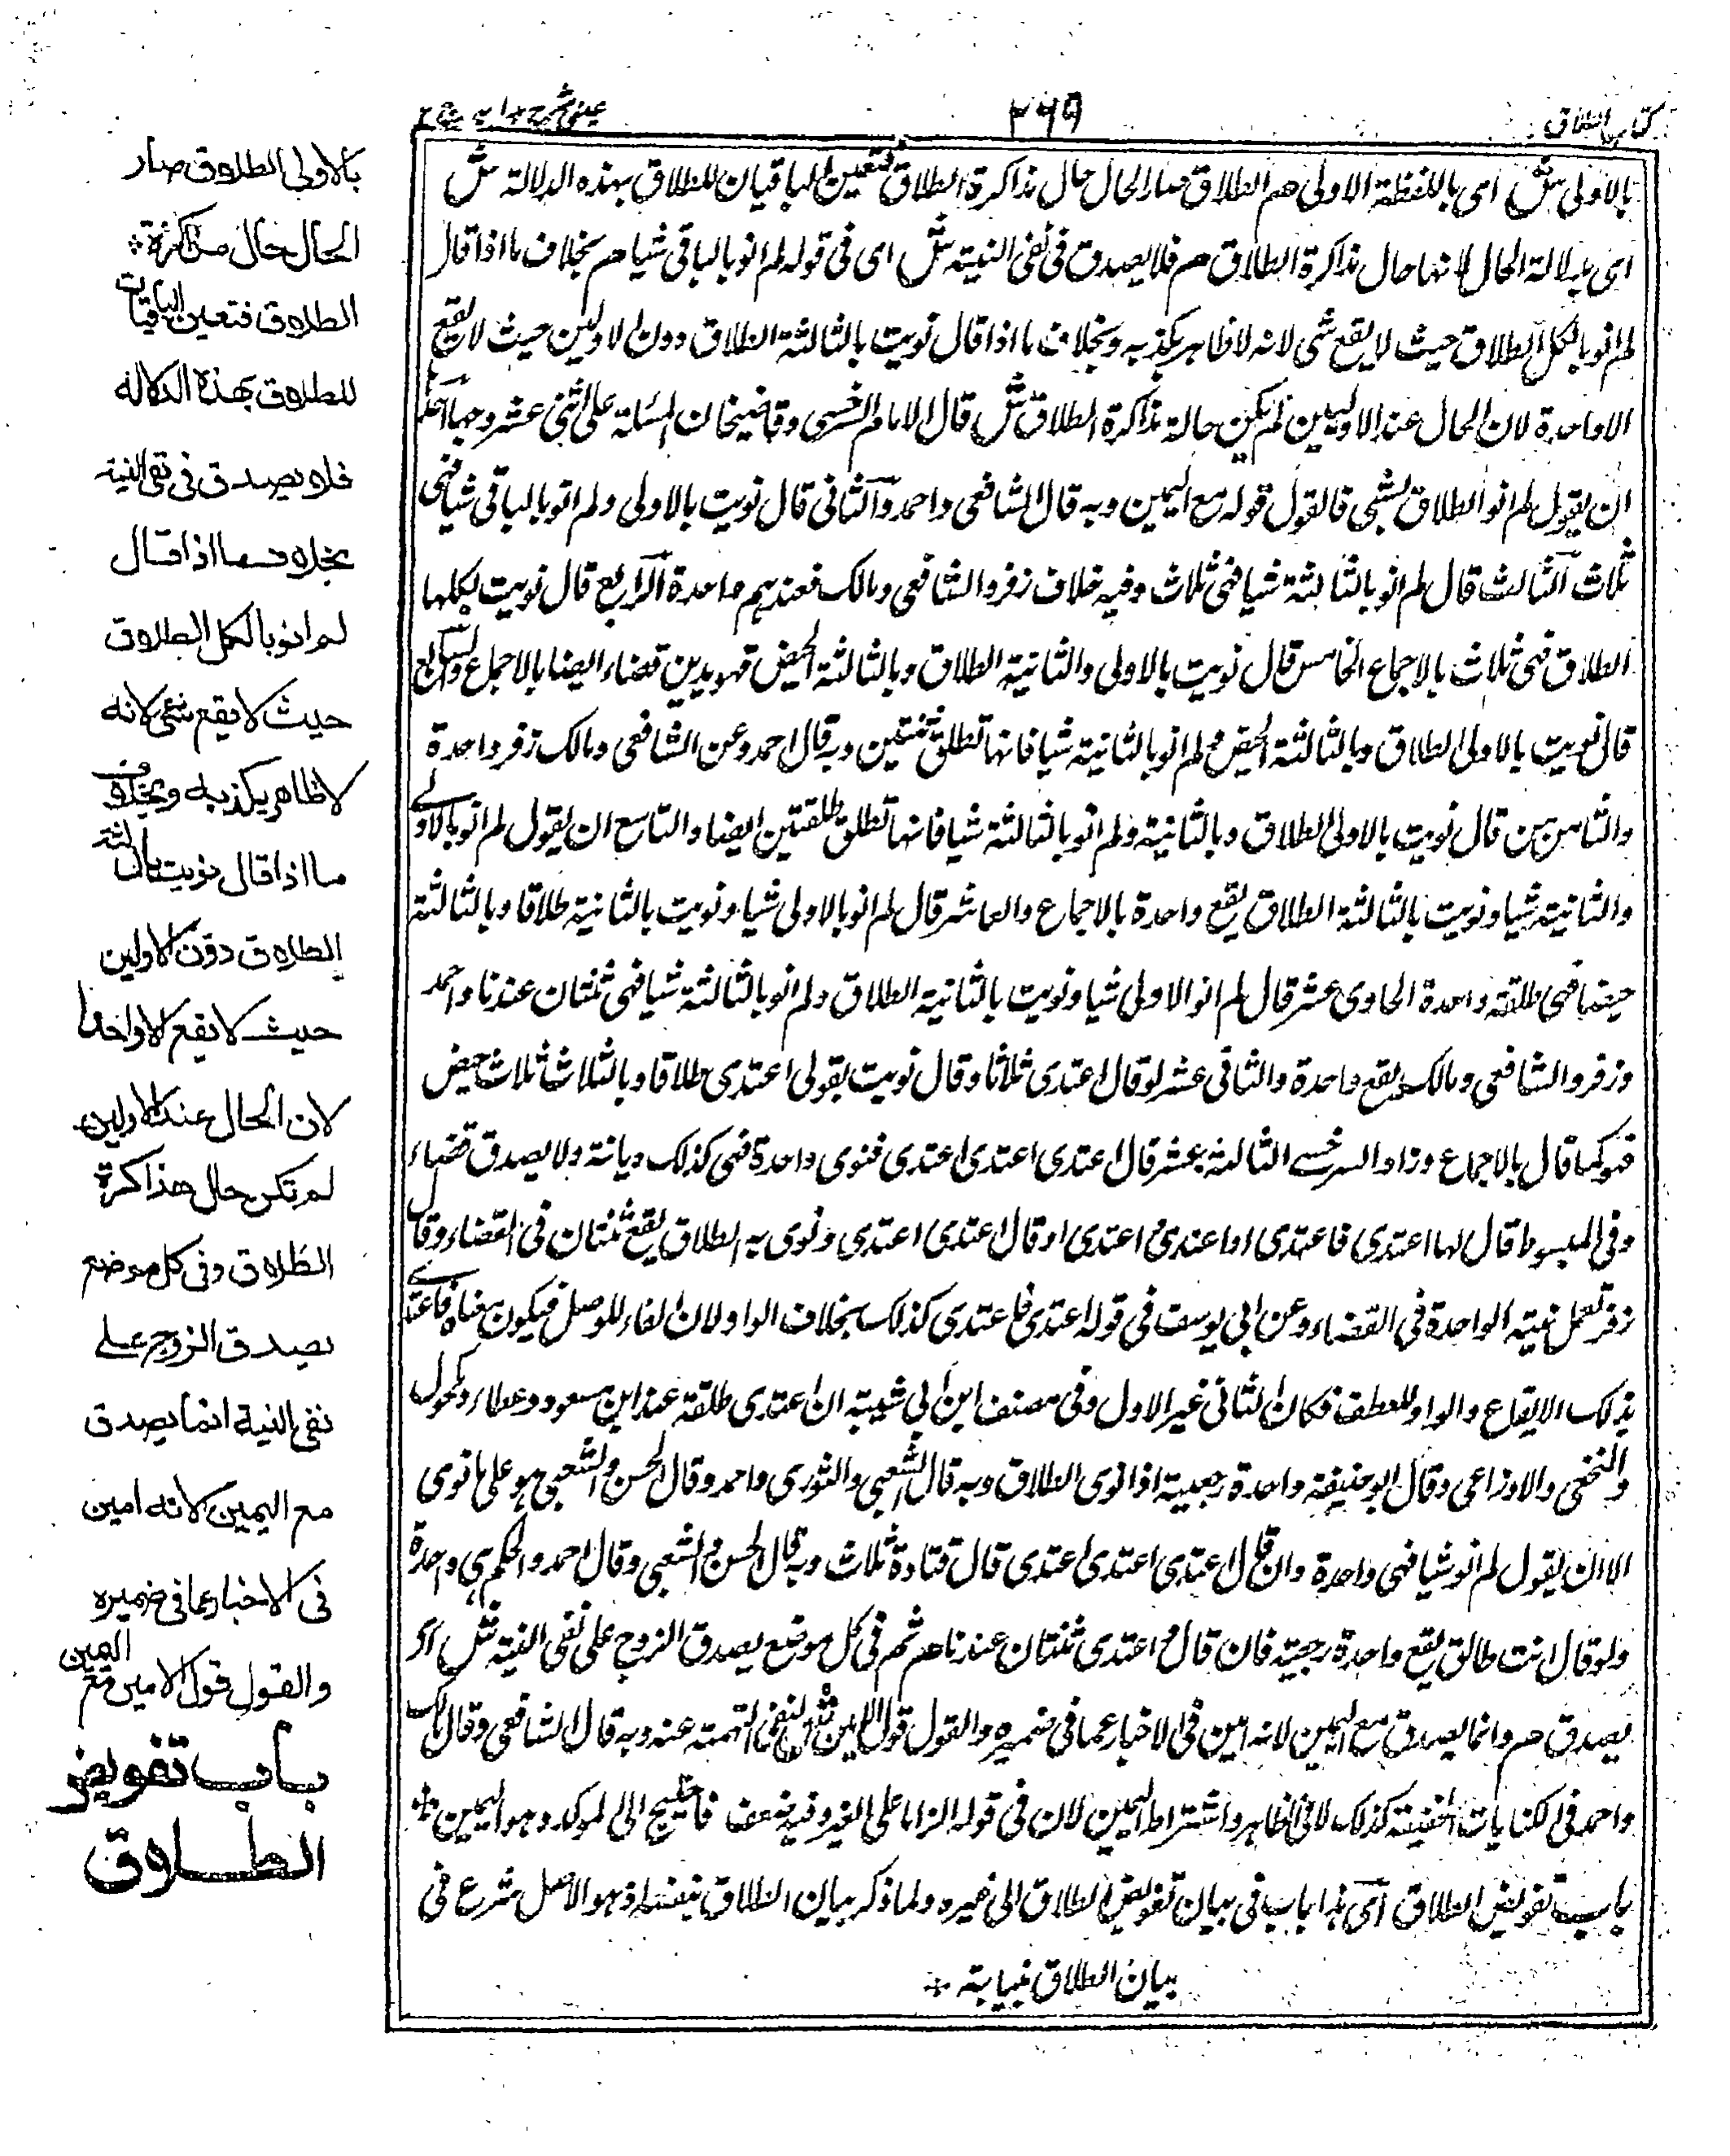 كتاب الطلاق
٣٦٩
عينى شرح هدايه
بالاولى ش اى باللفظة الاولى هم الطلاق صار الحال حال مذاكرة الطلاق فتعين الباقيان للطلاق بهذه الدلالة ش
اى بدلالة الحال لانها حال مذاكرة الطلاق هم فلا يصدق فى نفى النية ش اى فى قوله لم انو بالباقى شيا هم بخلاف ما اذا قال
لم انو بالكل الطلاق حيث لا يقع شى لانه لا ظاهر يكذبه وبخلاف ما اذا قال نويت بالثالثة الطلاق دون الاوليين حيث لا يقع
الا واحدة لان الحال عند الاوليين لم يكن حالة مذاكرة الطلاق ش قال الامام السرخسى وقاضيخان المسئلة على اثنى عشر وجها احدها
ان يقول لم انو الطلاق بشى فالقول قوله مع اليمين وبه قال الشافعى واحمد والثانى قال نويت بالاولى ولم انو بالباقى شيا فهى
ثلاث الثالث قال لم انو بالثالثة شيا فهى ثلاث وفيه خلاف زفر والشافعى ومالك فعندهم واحدة الرابع قال نويت بكلها
الطلاق فهى ثلاث بالاجماع الخامس قال نويت بالاولى والثانية الطلاق وبالثالثة الحيض فهو يدين قضاء ايضا بالاجماع والسابع
قال نويت بالاولى الطلاق وبالثالثة الحيض ولم انو بالثانية شيا فانها تطلق ثنتين وبه قال احمد وعن الشافعى ومالك زفر واحدة
والثامن من قال نويت بالاولى الطلاق وبالثانية ولم انو بالثالثة شيا فانها تطلق طلقتين ايضا والتاسع ان يقول لم انو بالاولى
والثانية شيا ونويت بالثالثة الطلاق يقع واحدة بالاجماع والعاشر قال لم انو بالاولى شيا ونويت بالثانية طلاقا وبالثالثة
حيضا فهى طلقة واحدة الحاوى عشر قال لم انو الاولى شيا ونويت بالثانية الطلاق ولم انو بالثالثة شيا فهى ثنتان عندنا واحمد
وزفر والشافعى ومالك يقع واحدة والثانى عشر لو قال اعتدى ثلاثا وقال نويت بقولى اعتدى طلاقا وبالثلاث ثلاث حيض
فهو كما قال بالاجماع وزاد السرخسى الثالثة عشر قال اعتدى اعتدى اعتدى فنوى واحدة فهى كذلك ديانة ولا يصدق قضاء
وفى المبسوط قال لها اعتدى فاعتدى او اعتدى واعتدى او قال اعتدى اعتدى ونوى به الطلاق يقع ثنتان فى القضاء وقال
زفر تعمل نيته الواحدة فى القضاء وعن ابى يوسف فى قوله اعتدى فاعتدى كذلك بخلاف الواو لان الفاء للوصل فيكون معناه فاعتدى
بذلك الايقاع والواو للعطف فكان الثانى غير الاول وفى مصنف ابن ابى شيبة ان اعتدى طلقة عند ابن مسعود وعطاء ومكحول
والنخعى والاوزاعى وقال ابو حنيفة واحدة رجعية اذا نوى الطلاق وبه قال الشعبى والثورى واحمد وقال الحسن والشعبى هو على ما نوى
الا ان يقول لم انو شيا فهى واحدة وان قال اعتدى اعتدى اعتدى قال قتادة ثلاث وبه قال الحسن والشعبى وقال احمد والحكم هى واحدة
ولو قال انت طالق يقع واحدة رجعية فان قال واعتدى ثنتان عندنا هم ثم فى كل موضع يصدق الزوج على نفى النية ش اى
يصدق هم وانما يصدق مع اليمين لانه امين فى الاخبار عما فى ضميره والقول قول الامين ش لنفى التهمة عنه وبه قال الشافعى وقال مالك
واحمد فى الكنايات الخفيفة كذلك لا فى الظاهر واشتراط اليمين لان فى قوله الزاما على الغير وفيه ضعف فاحتيج الى الموكد وهو اليمين
باب تفويض الطلاق اى هذا باب فى بيان تفويض الطلاق الى غيره ولما ذكر بيان الطلاق بنفسه اذ هو الاصل شرع فى
بيان الطلاق نيابة
بالاولى الطلاق صار
الحال حال مذاكرة
الطلاق فتعين الباقيات
للطلاق بهذه الدلالة
فلا يصدق فى نفى النية
بخلاف ما اذا قال
لم انو بالكل الطلاق
حيث لا يقع شئ لانه
لا ظاهر يكذبه وبخلاف
ما اذا قال نويت بالثالثة
الطلاق دون الاولين
حيث لا يقع الا واحدا
لان الحال عند الاولين
لم تكن حال مذاكرة
الطلاق وفى كل موضع
يصدق الزوج على
نفى النية انما يصدق
مع اليمين لانه امين
فى الاخبار عما فى ضميره
والقول قول الامين مع اليمين
باب تفويض
الطلاق